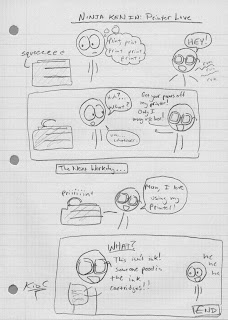 NINJA KEN IN: Printer Love
squeeeeee
Print print
print print
print!
HEY!
huh?
What?
Get your paws off
my printer!
Only I
may use her!
um...
whatever
The Next Workday...
Priiiiiint
Man, I love
using my
printer!!
WHAT?
This isn't ink!
Someone peed in
the ink
cartridges!!
he
he he
he
END